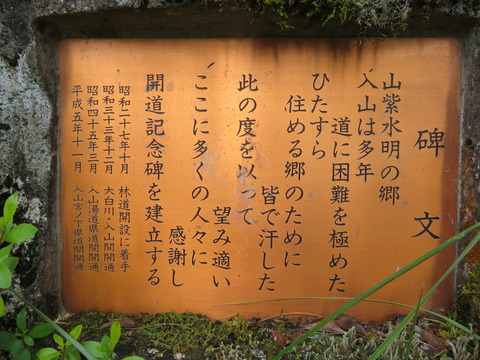 碑文
山紫水明の郷
入山は多年
道に困難を極めた
ひたすら
住める郷のために
皆で汗した
此の度を以って
望み適い
ここに多くの人々に
感謝し
開道記念碑を建立する
昭和二十七年十月 林道開設に着手
昭和三十三年十二月 大白川・入山間開通
昭和四十五年三月 入山湯道県道開通
平成五年十一月 入山宮ノ下県道間開通